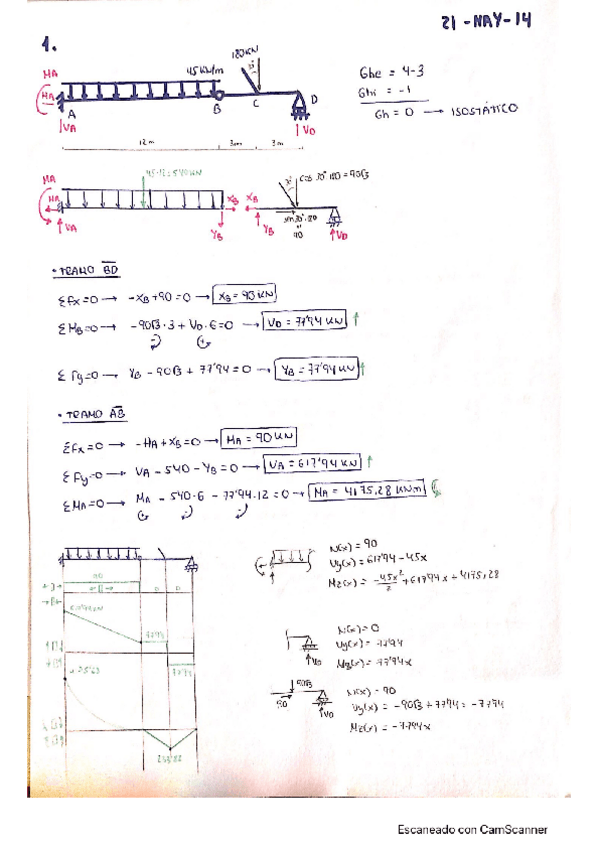 21-MAY-14
1.
180KN
45KN/m
MA
HA
A
B
C
D
VA
VD
12m
3m
3m
Ghe = 4-3
Ghi = -1
Gh = 0 → ISOSTÁTICO
45·12=540KN
cos 30°·180=90√3
MA
HA
XB
XB
VA
YB
YB
sin30°·180
90
VD
· TRAMO BD
ΣFx=0 → -XB+90=0 → XB=90KN
ΣMB=0 → -90√3·3 + VD·6=0 → VD=77'94KN ↑
ΣFy=0 → YB - 90√3 + 77'94=0 → YB=77'94KN ↑
· TRAMO AB
ΣFx=0 → -HA + XB=0 → HA=90KN
ΣFy=0 → VA - 540 - YB=0 → VA=617'94KN ↑
ΣMA=0 → MA - 540·6 - 77'94·12=0 → MA=4175,28 KNm
N(x) = 90
Vy(x) = 617'94-45x
Mz(x) = -45x²/2 + 617'94x + 4175,28
N(x) = 0
Vy(x) = -77'94
Mz(x) = 77'94x
VD
90√3
90
VD
N(x) = 90
Vy(x) = -90√3 + 77'94 = -77'94
Mz(x) = -77'94x
90
0
0
77'94
77'94
Escaneado con CamScanner